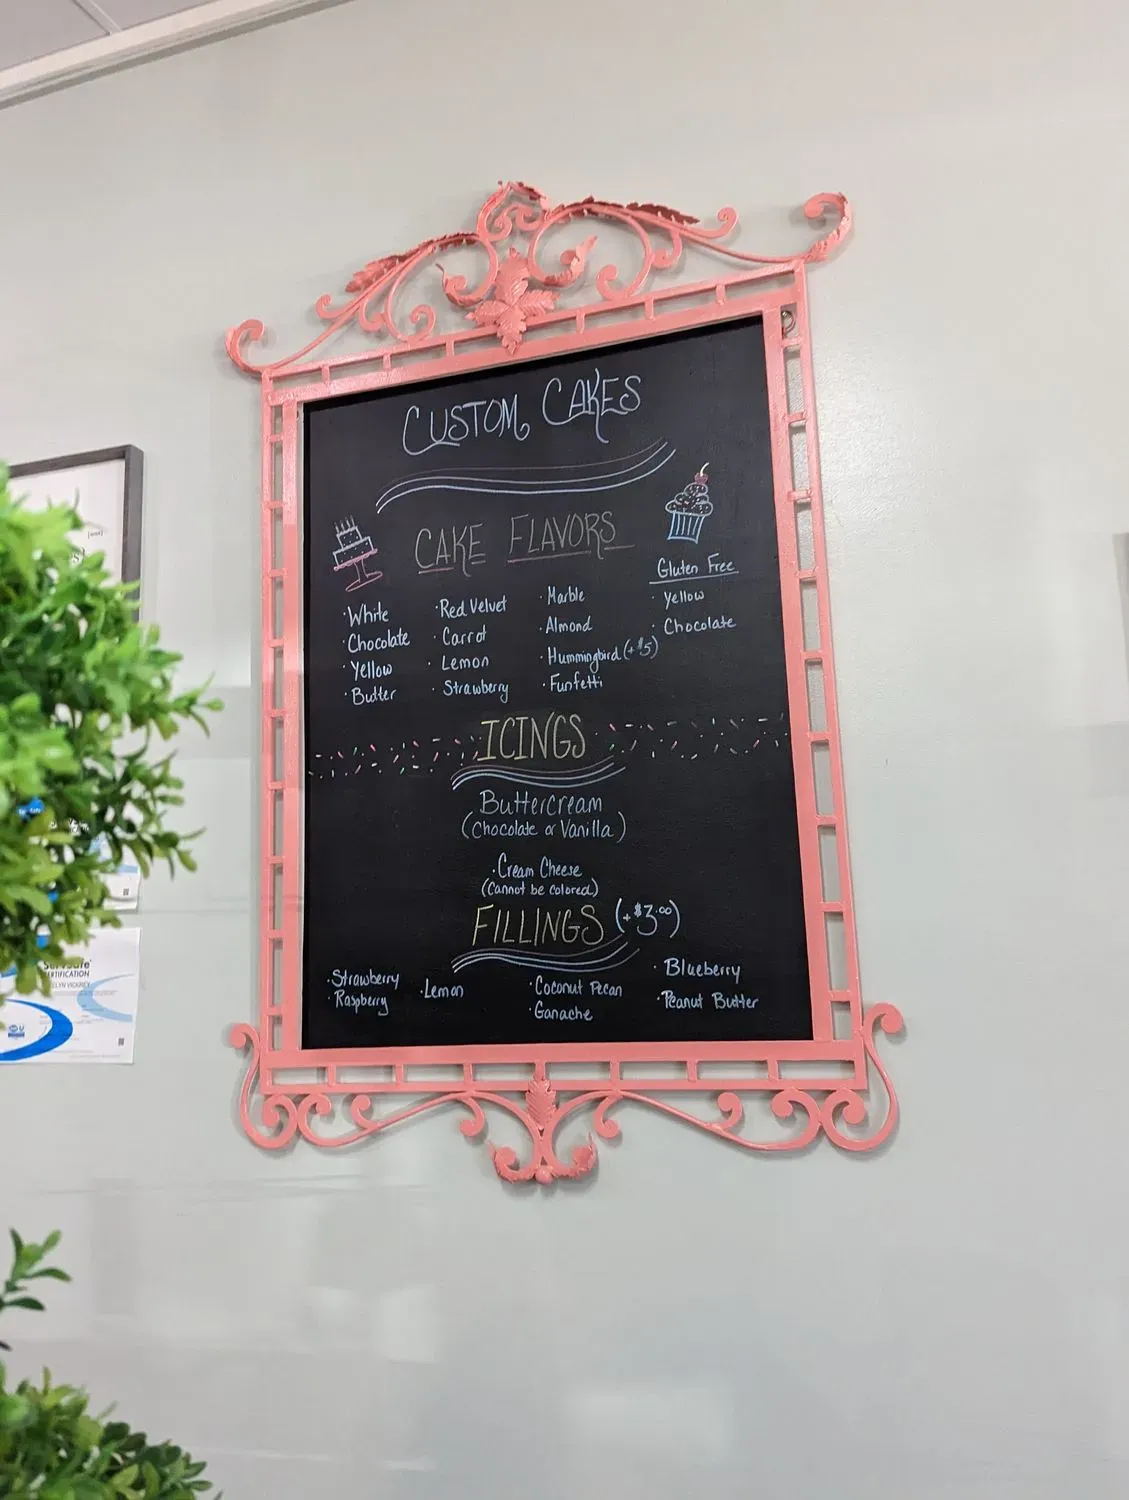 CUSTOM CAKES
CAKE FLAVORS
· White
· Chocolate
· Yellow
· Butter
· Red Velvet
· Carrot
· Lemon
· Strawberry
· Marble
· Almond
· Hummingbird (+$5)
· Funfetti
Gluten Free
· Yellow
· Chocolate
ICINGS
Buttercream
(Chocolate or Vanilla)
· Cream Cheese
(Cannot be colored)
FILLINGS (+$3.00)
· Strawberry
· Raspberry
· Lemon
· Coconut Pecan
· Ganache
· Blueberry
· Peanut Butter